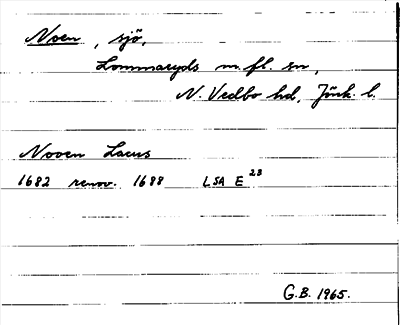 Noen, sjö,
Lommaryds m. fl. sn,
N. Vedbo hd, Jönk. l.
Nooen Lacus
1682 renov. 1688 LSA E 23
G.B. 1965.